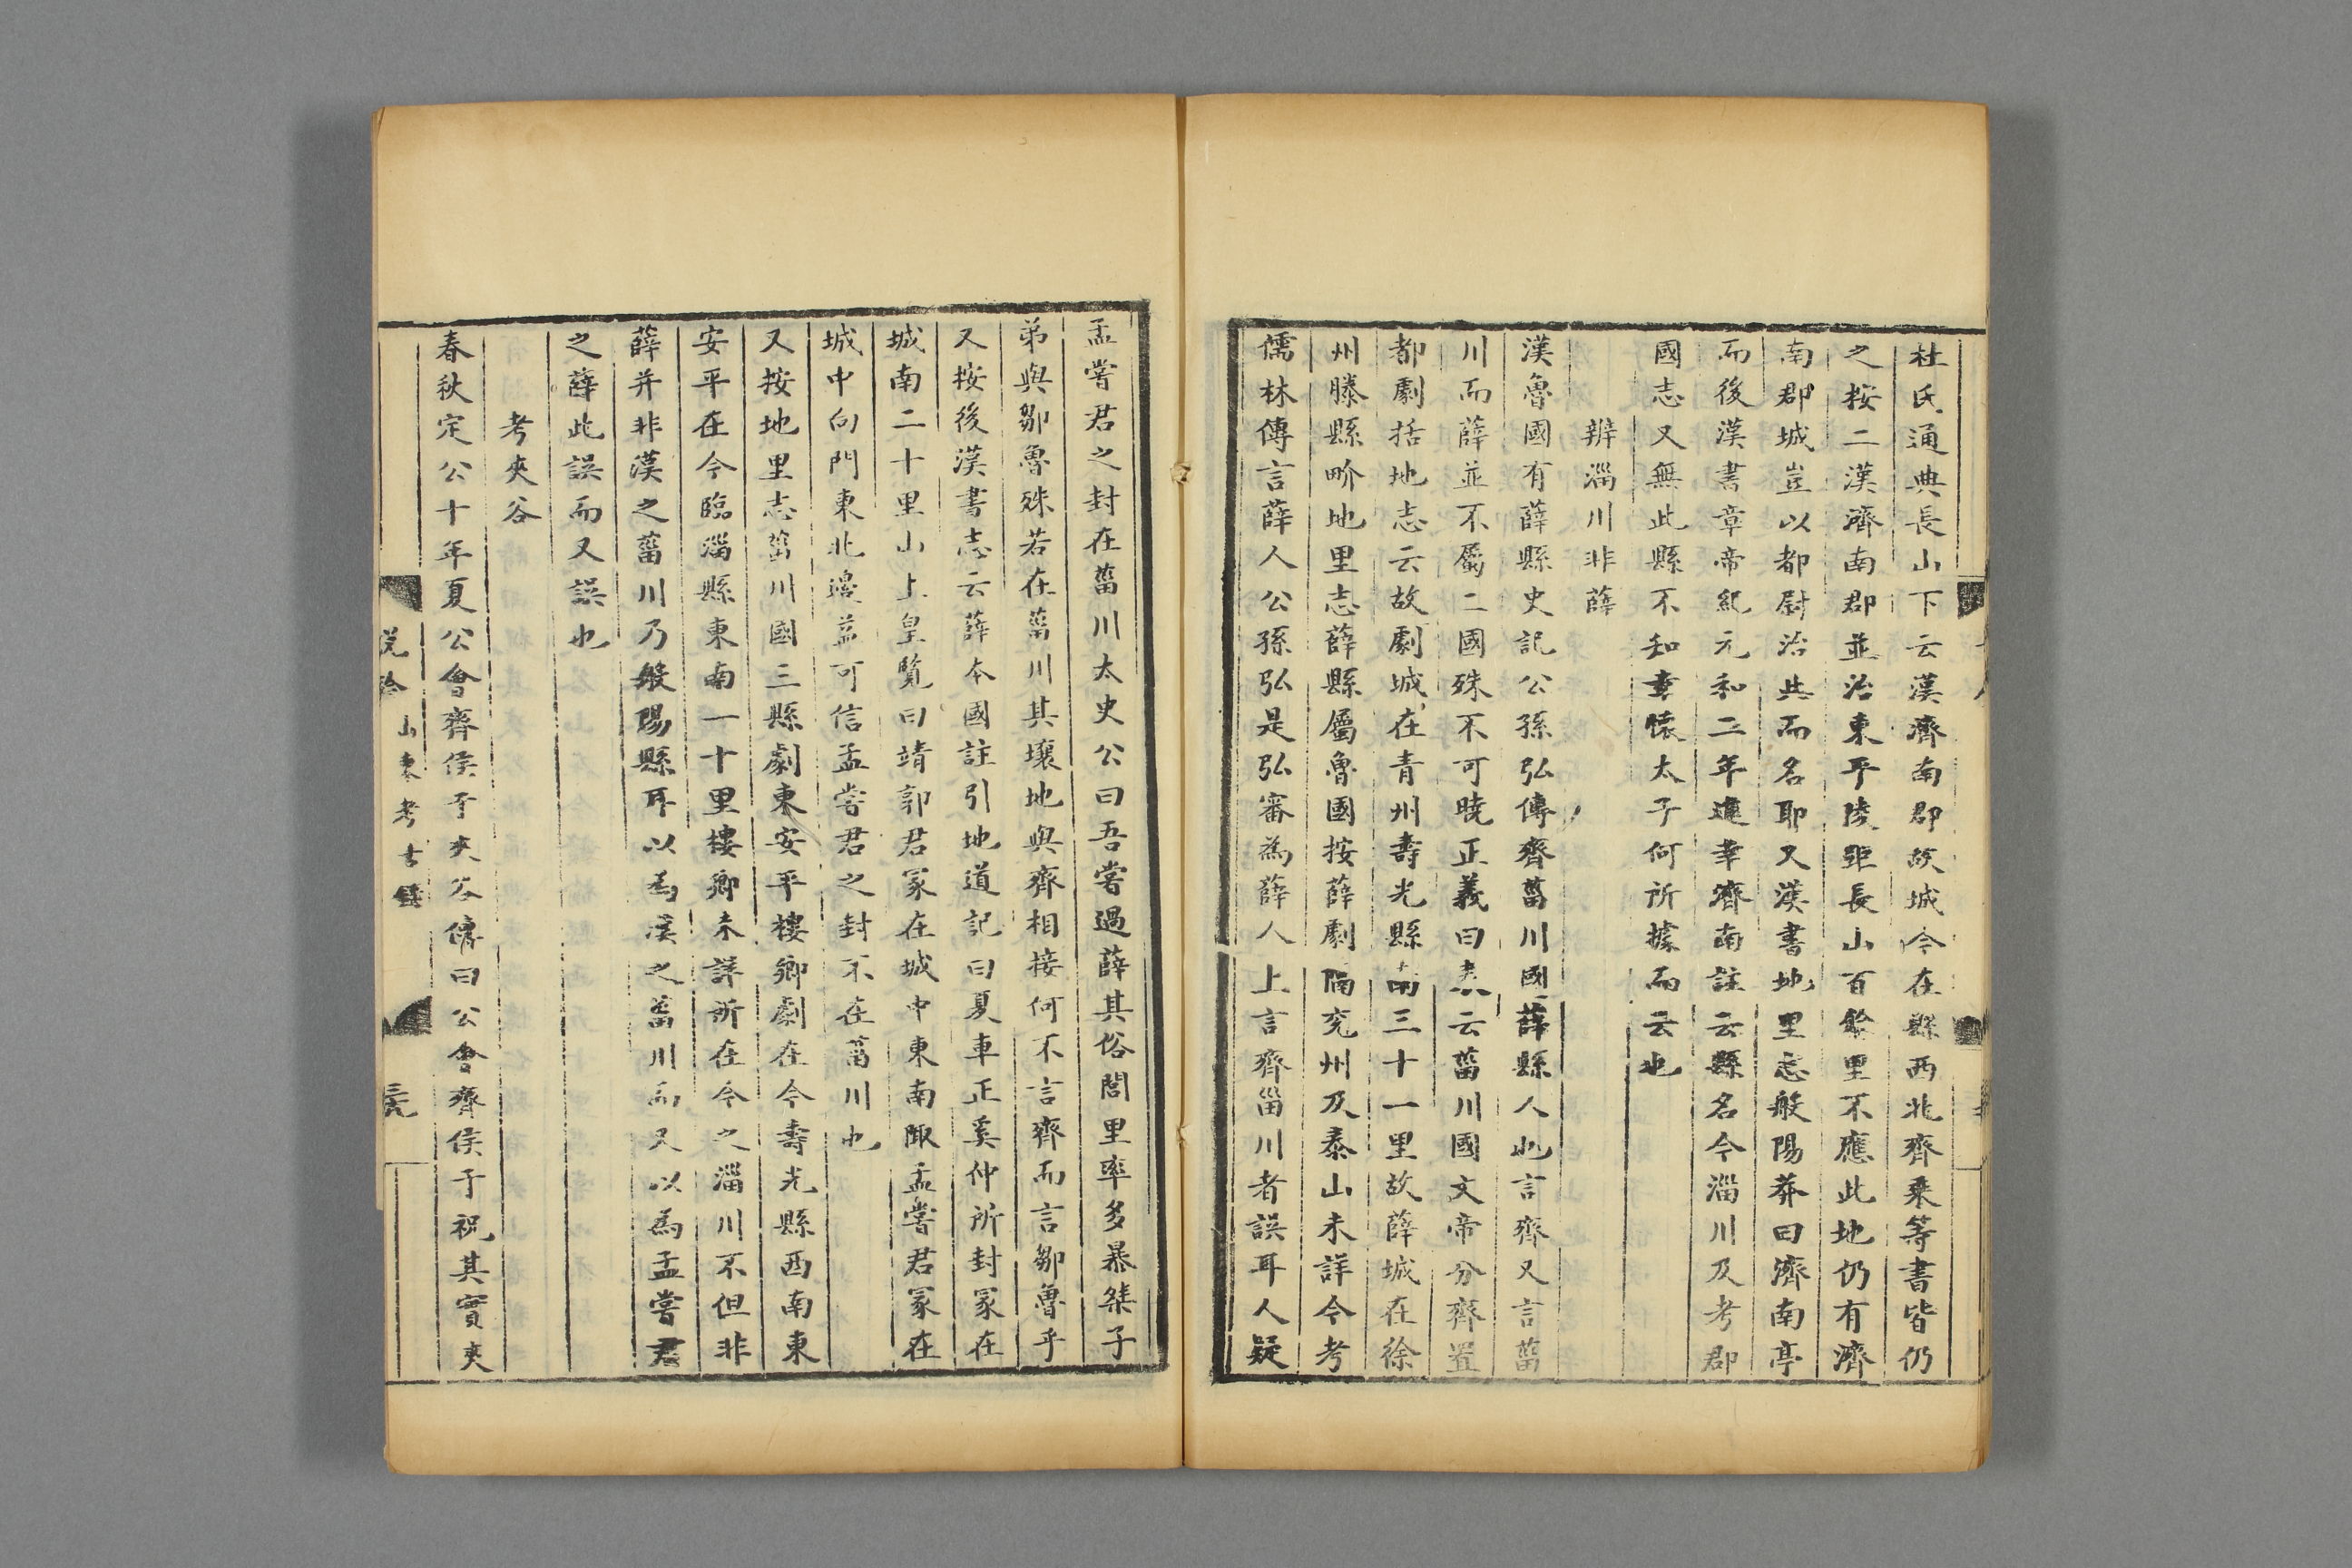 杜氏通典長山下云漢濟南郡故城今在縣西北齊乘等書皆仍
之按二漢濟南郡並治東平陵距長山百餘里不應此地仍有濟
南郡城豈以都尉治此而名耶又漢書地里志般陽莽曰濟南亭
而後漢書章帝紀元和二年進幸濟南註云縣名今淄川及考郡
國志又無此縣不知章懷太子何所據而云也
辨淄川非薛
漢魯國有薛縣史記公孫弘傳齊菑川國薛縣人也言齊又言菑
川而薛並不屬二國殊不可曉正義曰表云菑川國文帝分齊置
都劇括地志云故劇城在青州壽光縣南三十一里故薛城在徐
州滕縣界地里志薛縣屬魯國按薛劇隔兗州及泰山未詳今考
儒林傳言薛人公孫弘是弘審為薛人上言齊菑川者誤耳人疑
孟嘗君之封在菑川太史公曰吾嘗過薛其俗閭里率多暴桀子
弟與鄒魯殊若在菑川其壤地與齊相接何不言齊而言鄒魯乎
又按後漢書志云薛本國註引地道記曰夏車正奚仲所封冢在
城南二十里山上皇覽曰靖郭君冢在城中東南陬孟嘗君冢在
城中向門東北邊益可信孟嘗君之封不在菑川也
又按地里志菑川國三縣劇東安平樓鄉劇在今壽光縣西南東
安平在今臨淄縣東南一十里樓鄉未詳所在今之淄川不但非
薛并非漢之菑川乃般陽縣耳以為漢之菑川而又以為孟嘗君
之薛此誤而又誤也
考夾谷
春秋定公十年夏公會齊侯于夾谷傳曰公會齊侯于祝其實夾
說鈴 山東考古錄 三九